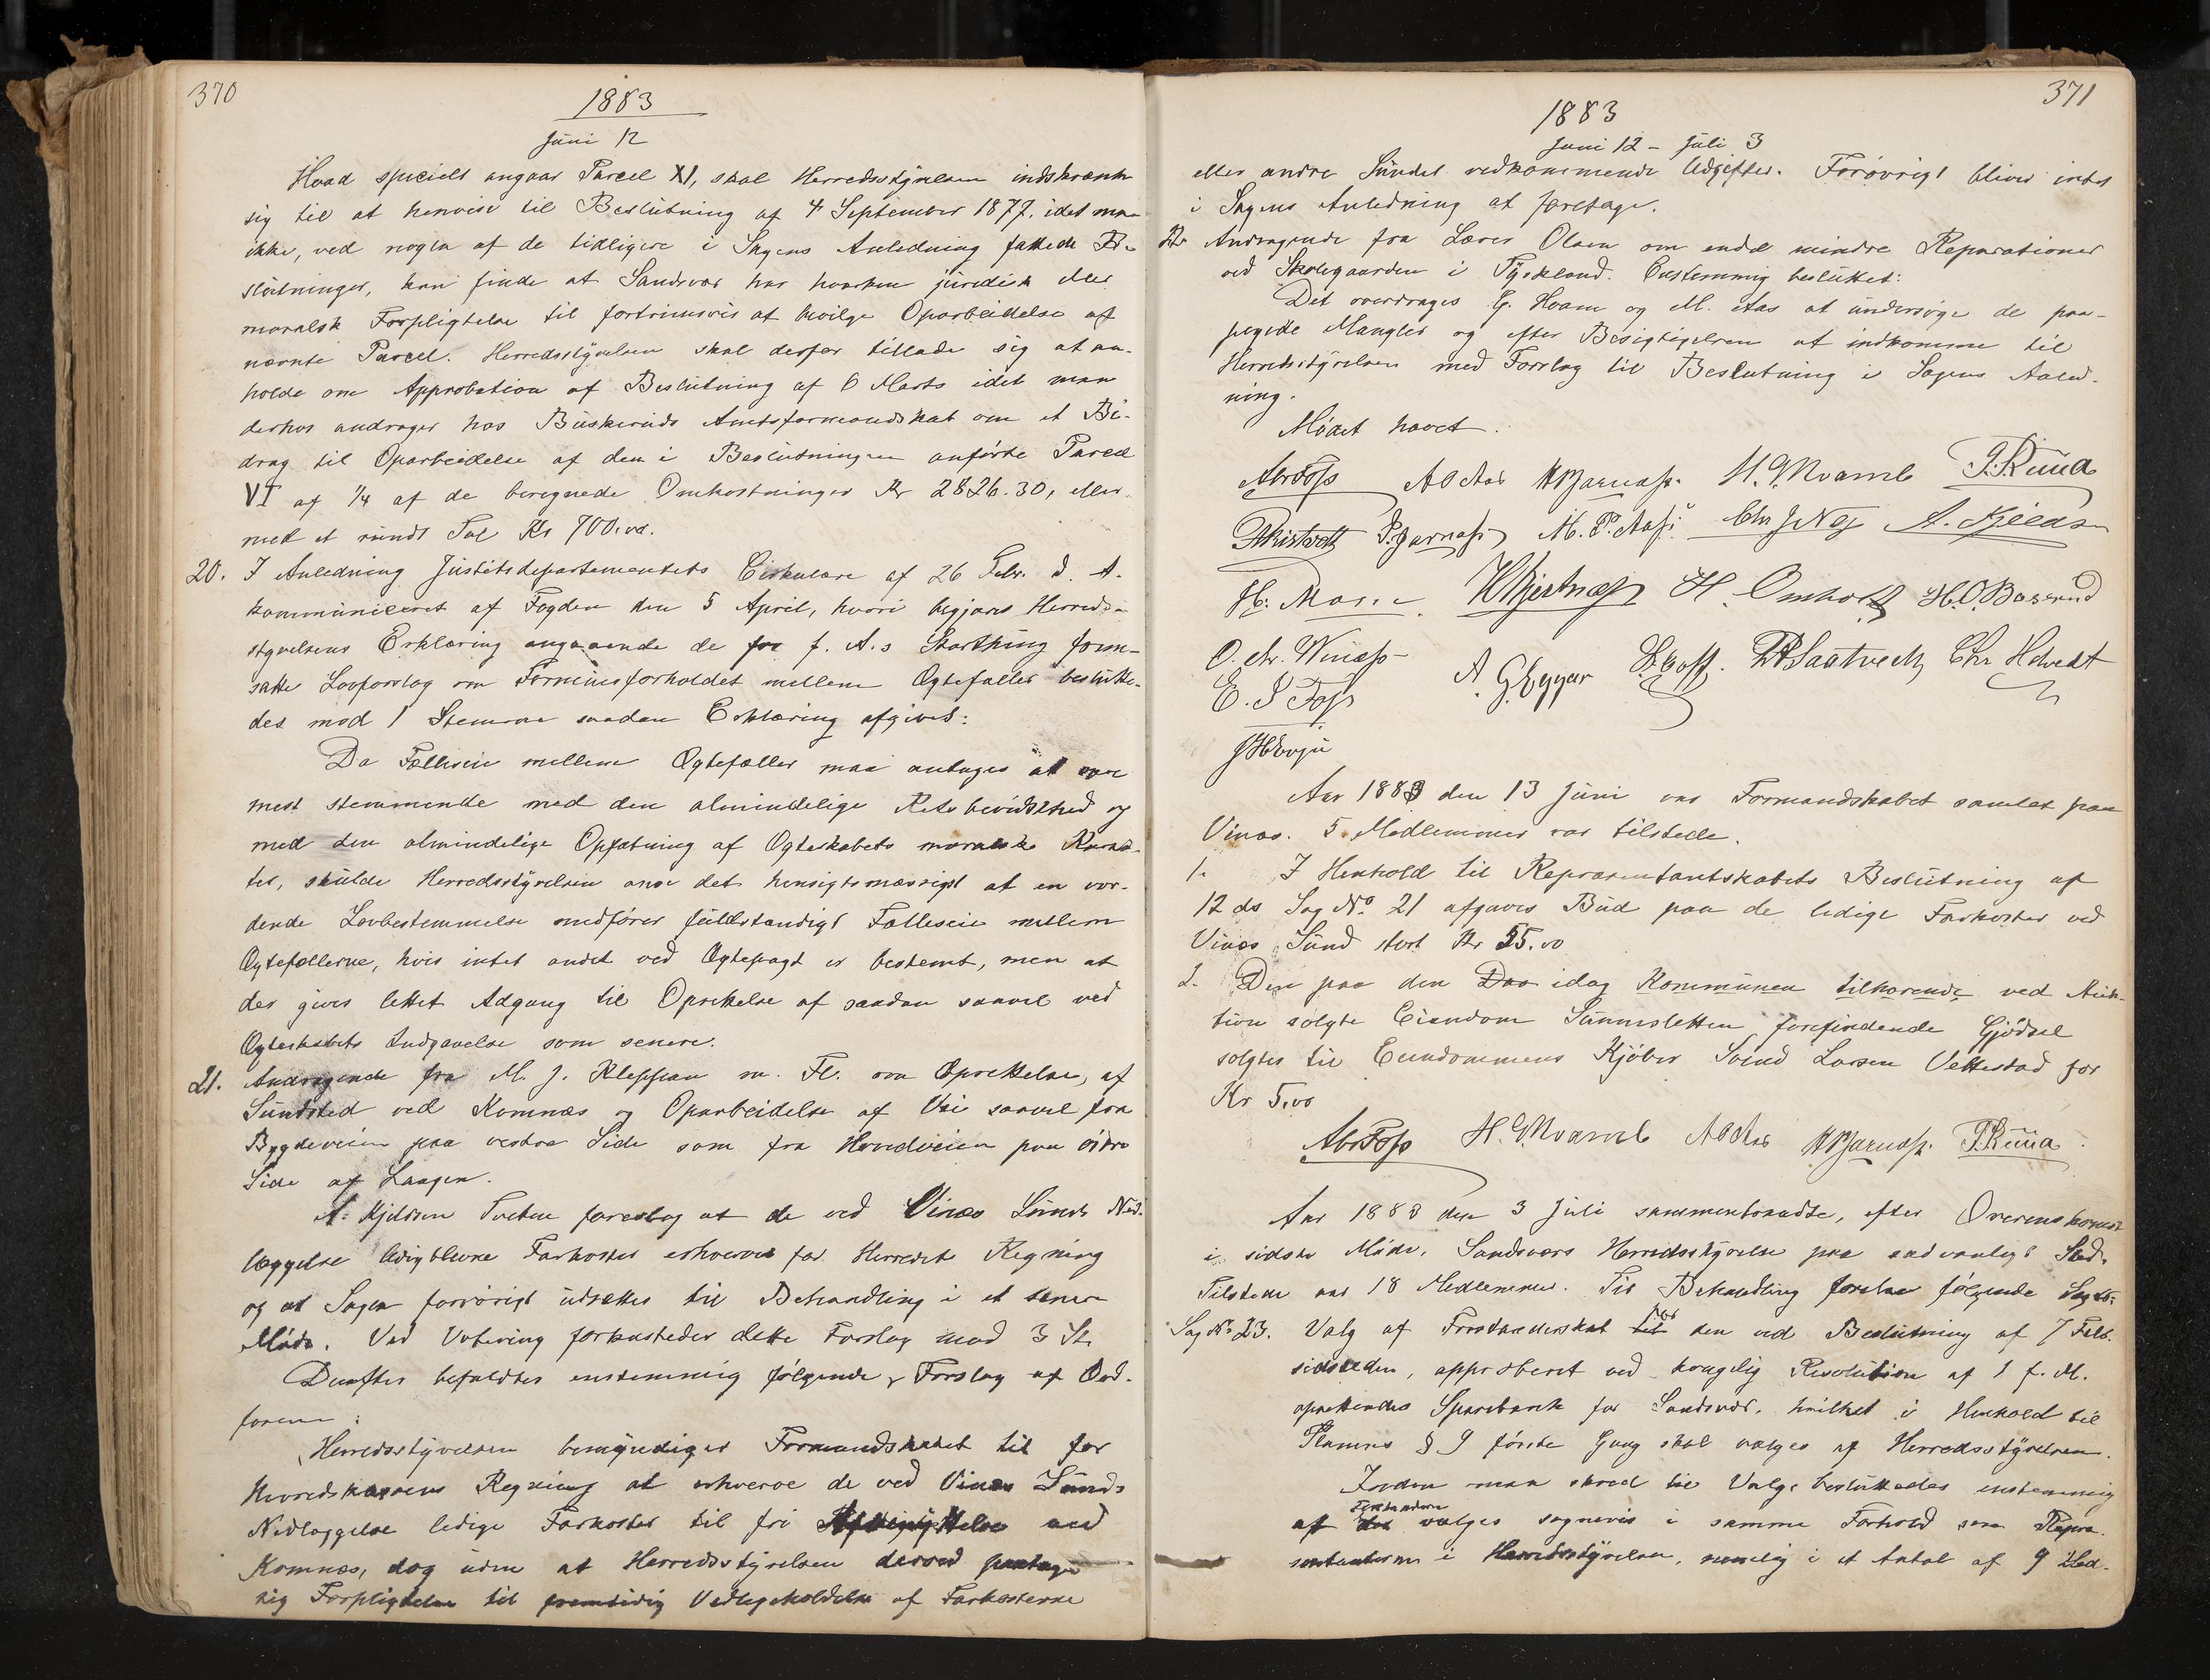 370
1883
Juni 12
Hvad specielt angaar Parcel XI, skal Herredsstyrelsen indskrænke
sig til at henvise til Beslutning af 4 September 1877, idet man
ikke, ved nogen af de tidligere i Sagens Anledning fattede Be-
slutninger, kan finde at Sandsvær har hverken juridisk eller
moralsk Forpligtelse til fortrinsvis at bevilge Oparbeidelse af
nævnte Parcel. Herredsstyrelsen skal derfor tillade sig at an-
holde om Approbation af Beslutning af 6 Marts idet man
derhos andrager hos Buskeruds Amtsformandskab om et Bi-
drag til Oparbeidelse af den i Beslutningen anførte Parcel
VI af 1/4 af de beregnede Omkostninger Kr 2826.30, eller
med et rundt Tal Kr 700.00.
20. I Anledning Justitsdepartementets Cirkulære af 26 Febr. d. A.
kommuniceret af Fogden den 5 April, hvori begjæres Herreds-
styrelsens Erklæring angaaende de for f. A.s Storthing frem-
satte Lovforslag om Formuesforholdet mellem Ægtefæller beslutte-
des mod 1 Stemme saadan Erklæring afgivet:
Da Fælleseie mellem Ægtefæller maa antages at være
mest stemmende med den almindelige Retsbevidsthed og
med den almindelige Opfatning af Ægteskabets moralske Karak-
ter, skulde Herredsstyrelsen anse det hensigtsmæssigst at en vor-
dende Lovbestemmelse medfører fuldstændigt Fælleseie mellem
Ægtefællerne, hvis intet andet ved Ægtepagt er bestemt, men at
der gives lettet Adgang til Oprettelse af saadan saavel ved
Ægteskabets Indgaaelse som senere.
21. Andragende fra M. J. Kleppan m. Fl. om Oprettelse af
Sundsted ved Komnæs og Oparbeidelse af Vei saavel fra
Bygdeveien paa vestre Side som fra Hovedveien paa østre
Side af Laagen.
A. Kjeldsen Tveten foreslog at de ved Vinæs Sunds Ned-
læggelse ledigblevne Farkoster erhverves for Herredets Regning
og at Sagen forøvrigt udsættes til Behandling i et senere
Møde. Ved Votering forkastedes dette Forslag mod 3 St.
Derefter bifaldtes enstemmig følgende Forslag af Ord-
føreren:
Herredsstyrelsen bemyndiger Formandskabet til for
Herredskassens Regning at erhverve de ved Vinæs Sunds
Nedlæggelse ledige Farkoster til fri Afbenyttelse ved
Komnæs, dog uden at Herredsstyrelsen derved paatager
sig Forpligtelse til fremtidig Vedligeholdelse af Farkosterne
371
1883
Juni 12 - Juli 3
eller andre Sundet vedkommende Udgifter. Forøvrigt bliver intet
i Sagens Anledning at foretage.
22. Andragende fra Lærer Olsen om endel mindre Reparationer
ved Skolegaarden i Tyskland. Enstemmig besluttet:
Det overdrages G. Hvam og M. Aas at undersøge de paa-
pegede Mangler og efter Besigtigelsen at indkomme til
Herredsstyrelsen med Forslag til Beslutning i Sagens Anled-
ning.
Mødet hævet.
Abr Foss A O Aas H Bjarnass. H. G. Hvamb P. Ruud
P. Jarnæss M. P. Aass Chr J Nøj A. Kjeldsen
H. Moe H. Omholt H. O. Baserud
O. Chr. Winæss A. G. Eggar Chr Helvedt
E. P Foss
J H Evju
Aar 1883 den 13 Juni var Formandskabet samlet paa
Vinæs. 5 Medlemmer var tilstede.
1. I Henhold til Repræsentantskabets Beslutning af
12 ds Sag No 21 afgaves Bud paa de ledige Farkoster ved
Vinæs Sund stort Kr 55.00
2. Den paa den Dao idag Kommunen tilhørende ved Auk-
tion solgte Eiendom Sunnsletten forefindende Gjødsel
solgtes til Eiendommens Kjøber Svend Larsen Vettestad for
Kr 5.00
Abr Foss H. G. Hvamb A O Aas H Bjarnass. P. Ruud
Aar 1883 den 3 Juli sammentraadte, efter Overenskomst
i sidste Møde, Sandsværs Herredsstyrelse paa sædvanligt Sted.
Tilstede var 18 Medlemmer. Til Behandling foretoges følgende Sager:
Sag No 23. Valg af Forstanderskab til for den ved Beslutning af 7 Febr.
sidstleden, approberet ved kongelig Resolution af 1 f. M.
oprettendes Sparebank for Sandsvær, hvilket i Henhold til
Planens § 9 første Gang skal vælges af Herredsstyrelsen.
Inden man skred til Valg, besluttedes enstemmig
at der Forstandere vælges sognevis i samme Forhold som Repræ-
sentanterne i Herredsstyrelsen, nemlig i et Antal af 9 Med-